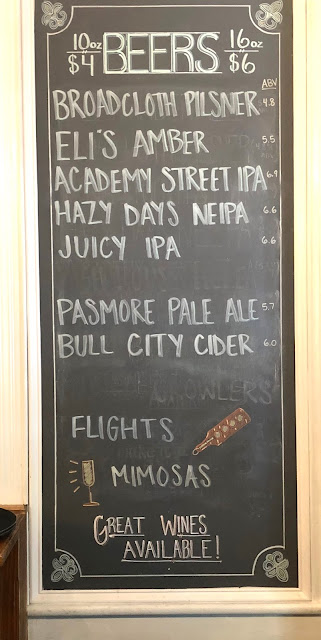 10oz BEERS 16oz
$4 $6
ABV
BROADCLOTH PILSNER 4.8
ELI'S AMBER 5.5
ACADEMY STREET IPA 6.9
HAZY DAYS NEIPA 6.6
JUICY IPA 6.6
PASMORE PALE ALE 5.7
BULL CITY CIDER 6.0
GROWLERS
FLIGHTS
MIMOSAS
GREAT WINES
AVAILABLE!